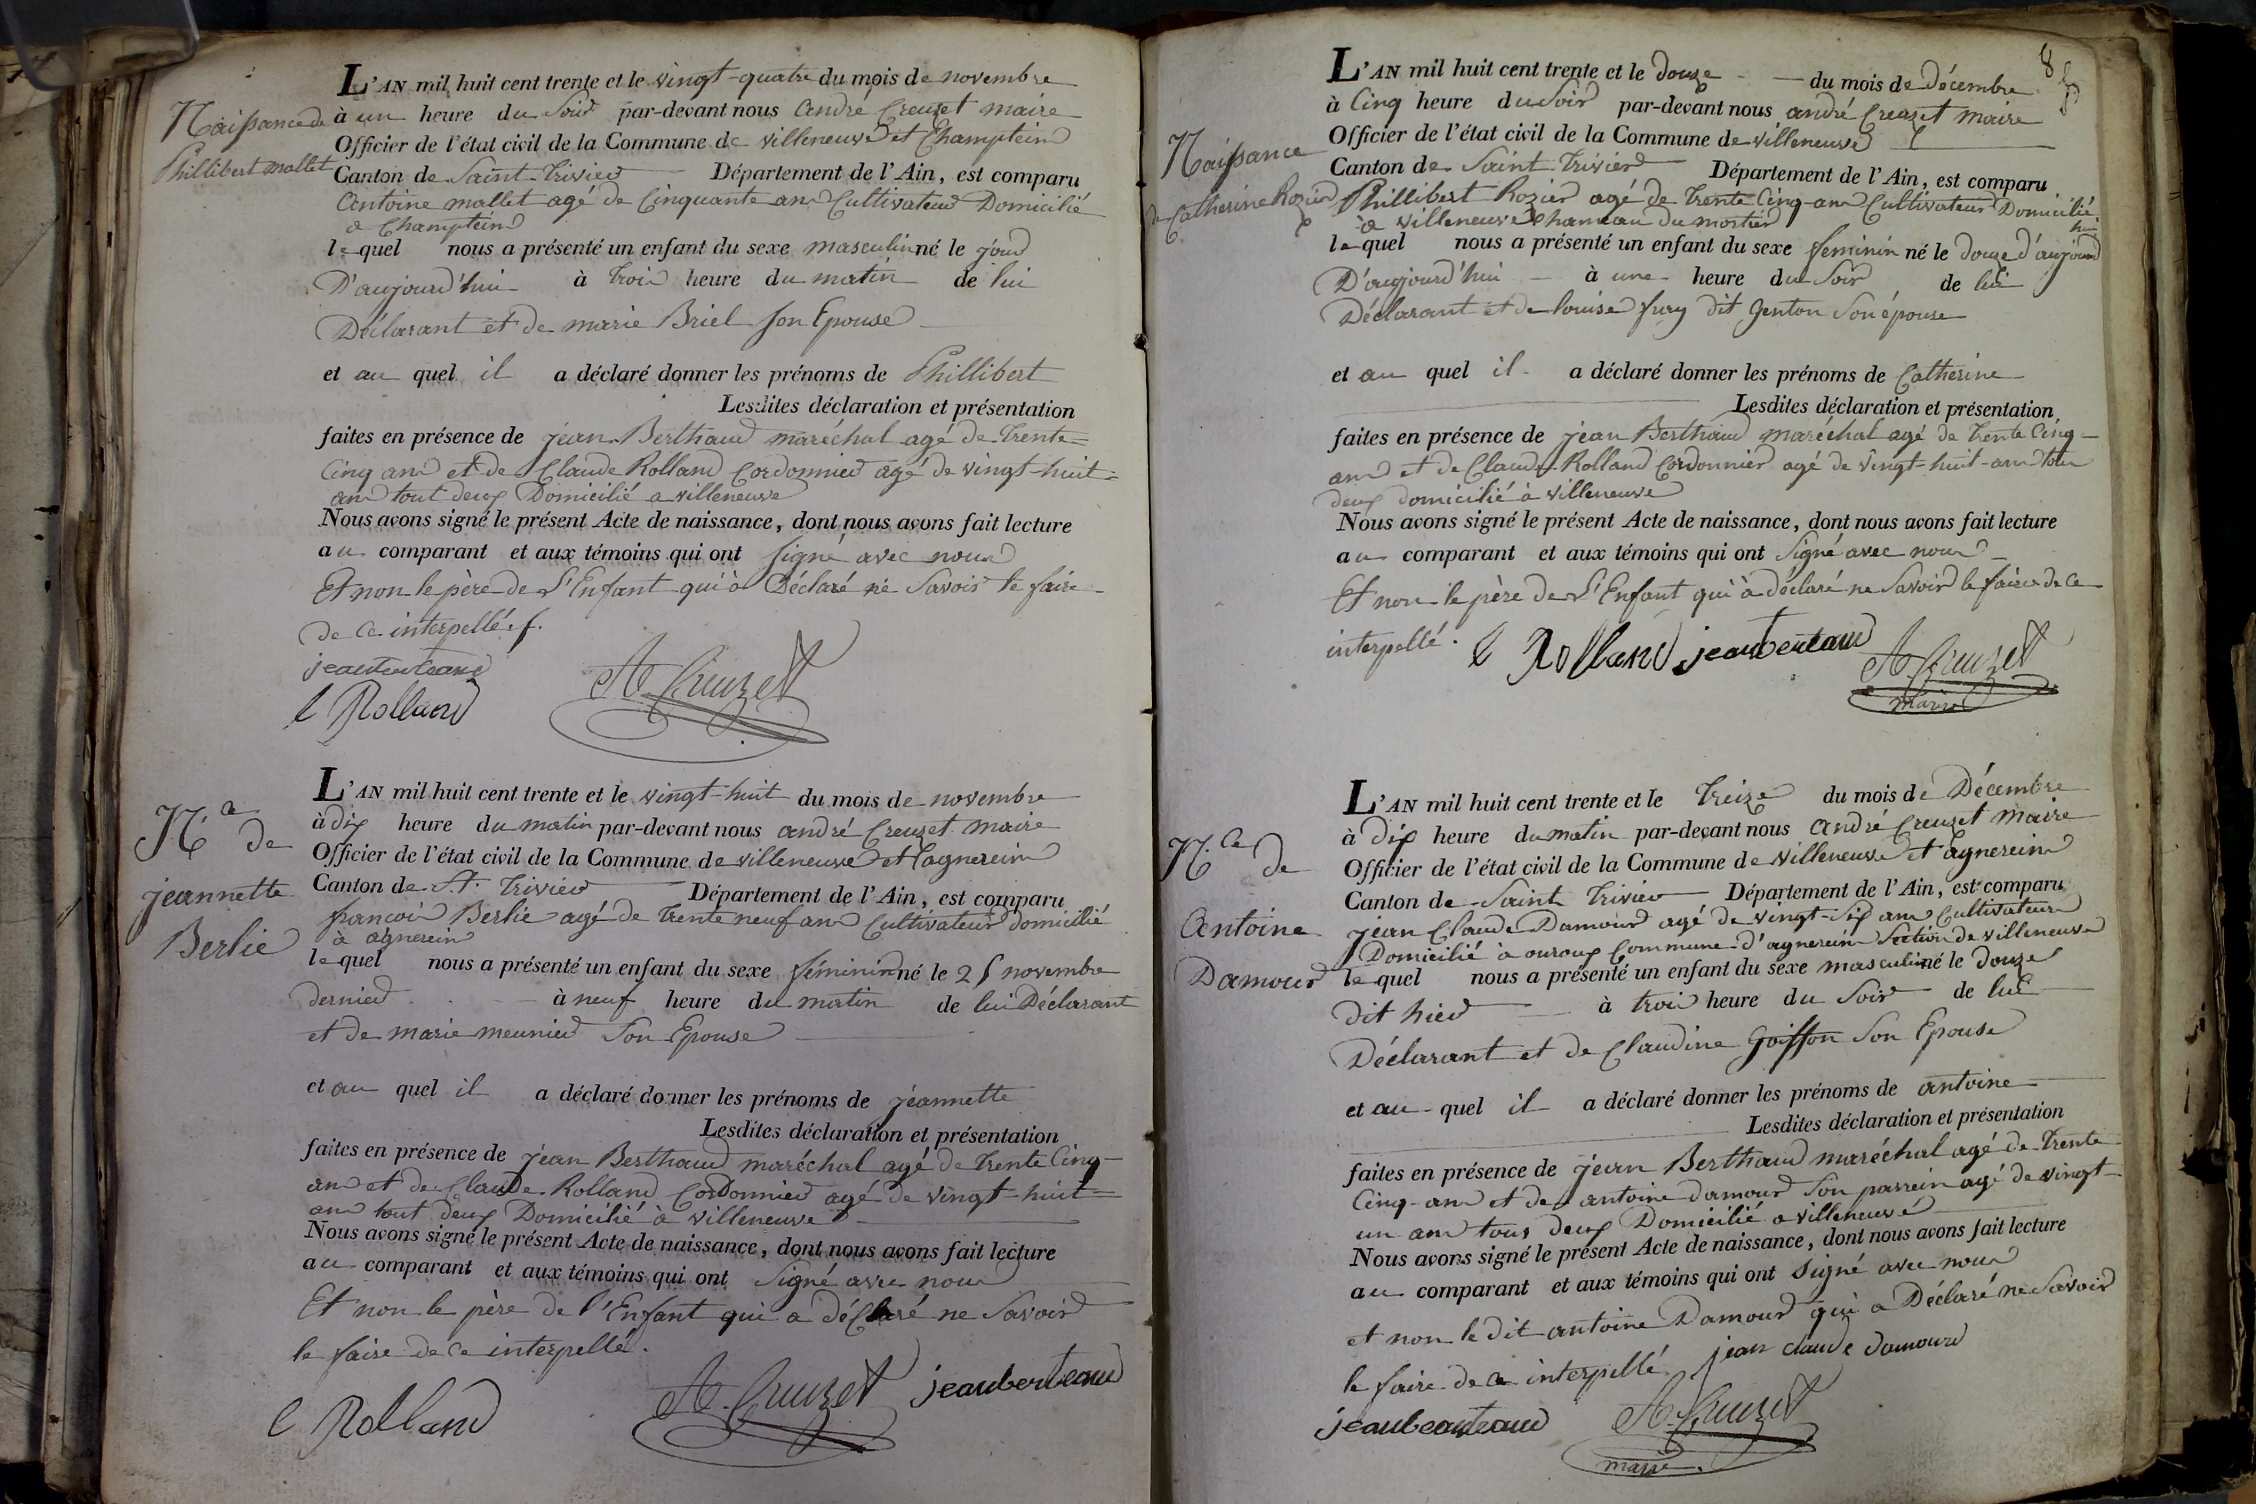 L'AN mil huit cent trente et le vingt-quatre du mois de novembre
Naissance de
Phillibert mallet
à un heure du soir par-devant nous andré Creuzet maire
Officier de l'état civil de la Commune de villeneuve et Champtein
Canton de Saint-Trivier Département de l'Ain, est comparu
antoine mallet agé de Cinquante ans Cultivateur Domicilié
a Champtein
lequel nous a présenté un enfant du sexe masculin né le jour
D'aujourd'hui à trois heure du matin de lui
Déclarant et de marie Briel son Epouse
et au quel il a déclaré donner les prénoms de Phillibert
Lesdites déclaration et présentation
faites en présence de jean Berthaud maréchal agé de trente=
Cinq ans et de Claude Rolland Cordonnier agé de vingt-huit=
ans tout deux Domicilié a villeneuve
Nous avons signé le présent Acte de naissance, dont nous avons fait lecture
au comparant et aux témoins qui ont signé avec nous
Et non le père de L'Enfant qui à Déclaré ne Savoir le faire
de ce interpellé.
jeanberteaud
C Rolland
A Creuzet
N.ce de
jeannette
Berlie
L'AN mil huit cent trente et le vingt-huit du mois de novembre
à dix heure du matin par-devant nous andré Creuzet maire
Officier de l'état civil de la Commune de villeneuve et agnerein
Canton de St. Trivier Département de l'Ain, est comparu
françois Berlie agé de trente neuf ans Cultivateur domicilié
à agnerein
lequel nous a présenté un enfant du sexe féminin né le 25 novembre
dernier à neuf heure du matin de lui Déclarant
et de marie meunier Son Epouse
et au quel il a déclaré donner les prénoms de jéannette
Lesdites déclaration et présentation
faites en présence de jean Berthaud maréchal agé de trente Cinq
ans et de Claude Rolland Cordonnier agé de vingt-huit=
ans tout deux Domicilié à villeneuve
Nous avons signé le présent Acte de naissance, dont nous avons fait lecture
au comparant et aux témoins qui ont signé avec nous
Et non le père de l'Enfant qui a déclaré ne Savoir
le faire de ce interpellé.
C Rolland
A. Creuzet
jeanberteaud
8
L'AN mil huit cent trente et le douze du mois de décembre
Naissance
de Catherine Rozier
à Cinq heure du Soir par-devant nous andré Creuzet maire
Officier de l'état civil de la Commune de villeneuve
Canton de Saint Trivier Département de l'Ain, est comparu
Phillibert Rozier agé de trente Cinq ans Cultivateur Domicilié
à villeneuve hameau du mortier
lequel nous a présenté un enfant du sexe feminin né le douze d'aujourd
hui
D'aujourd'hui à une heure du Soir de lui
Déclarant et de louise fury dit Genton Son épouse
et au quel il a déclaré donner les prénoms de Catherine
Lesdites déclaration et présentation
faites en présence de jean Berthaud maréchal agé de trente Cinq
ans et de Claude Rolland Cordonnier agé de vingt-huit ans tous
deux domicilié à villeneuve
Nous avons signé le présent Acte de naissance, dont nous avons fait lecture
au comparant et aux témoins qui ont signé avec nous
Et non le père de L'Enfant qui à déclaré ne Savoir le faire de ce
interpellé.
C Rolland jeanberteaud
A Creuzet
maire
N.ce de
antoine
Damour
L'AN mil huit cent trente et le Treize du mois de Décembre
à dix heure du matin par-devant nous andré Creuzet Maire
Officier de l'état civil de la Commune de villeneuve et agnerein
Canton de Saint Trivier Département de l'Ain, est comparu
jean Claude Damour agé de vingt-six ans Cultivateur
Domicilié à ouroux Commune d'agnerein Section de villeneuve
lequel nous a présenté un enfant du sexe masculin né le douze
dit hier à trois heure du Soir de lui
Déclarant et de Claudine Goiffon Son Epouse
et au quel il a déclaré donner les prénoms de antoine
Lesdites déclaration et présentation
faites en présence de jean Berthaud maréchal agé de trente
Cinq ans et de antoine damour Son parrein agé de vingt-
un ans tous deux Domicilié a villeneuve
Nous avons signé le présent Acte de naissance, dont nous avons fait lecture
au comparant et aux témoins qui ont signé avec nous
et non le dit antoine Damour qui a Déclaré ne Savoir
le faire de ce interpellé
jean claude damour
jeanberteaud
A. Creuzet
maire.